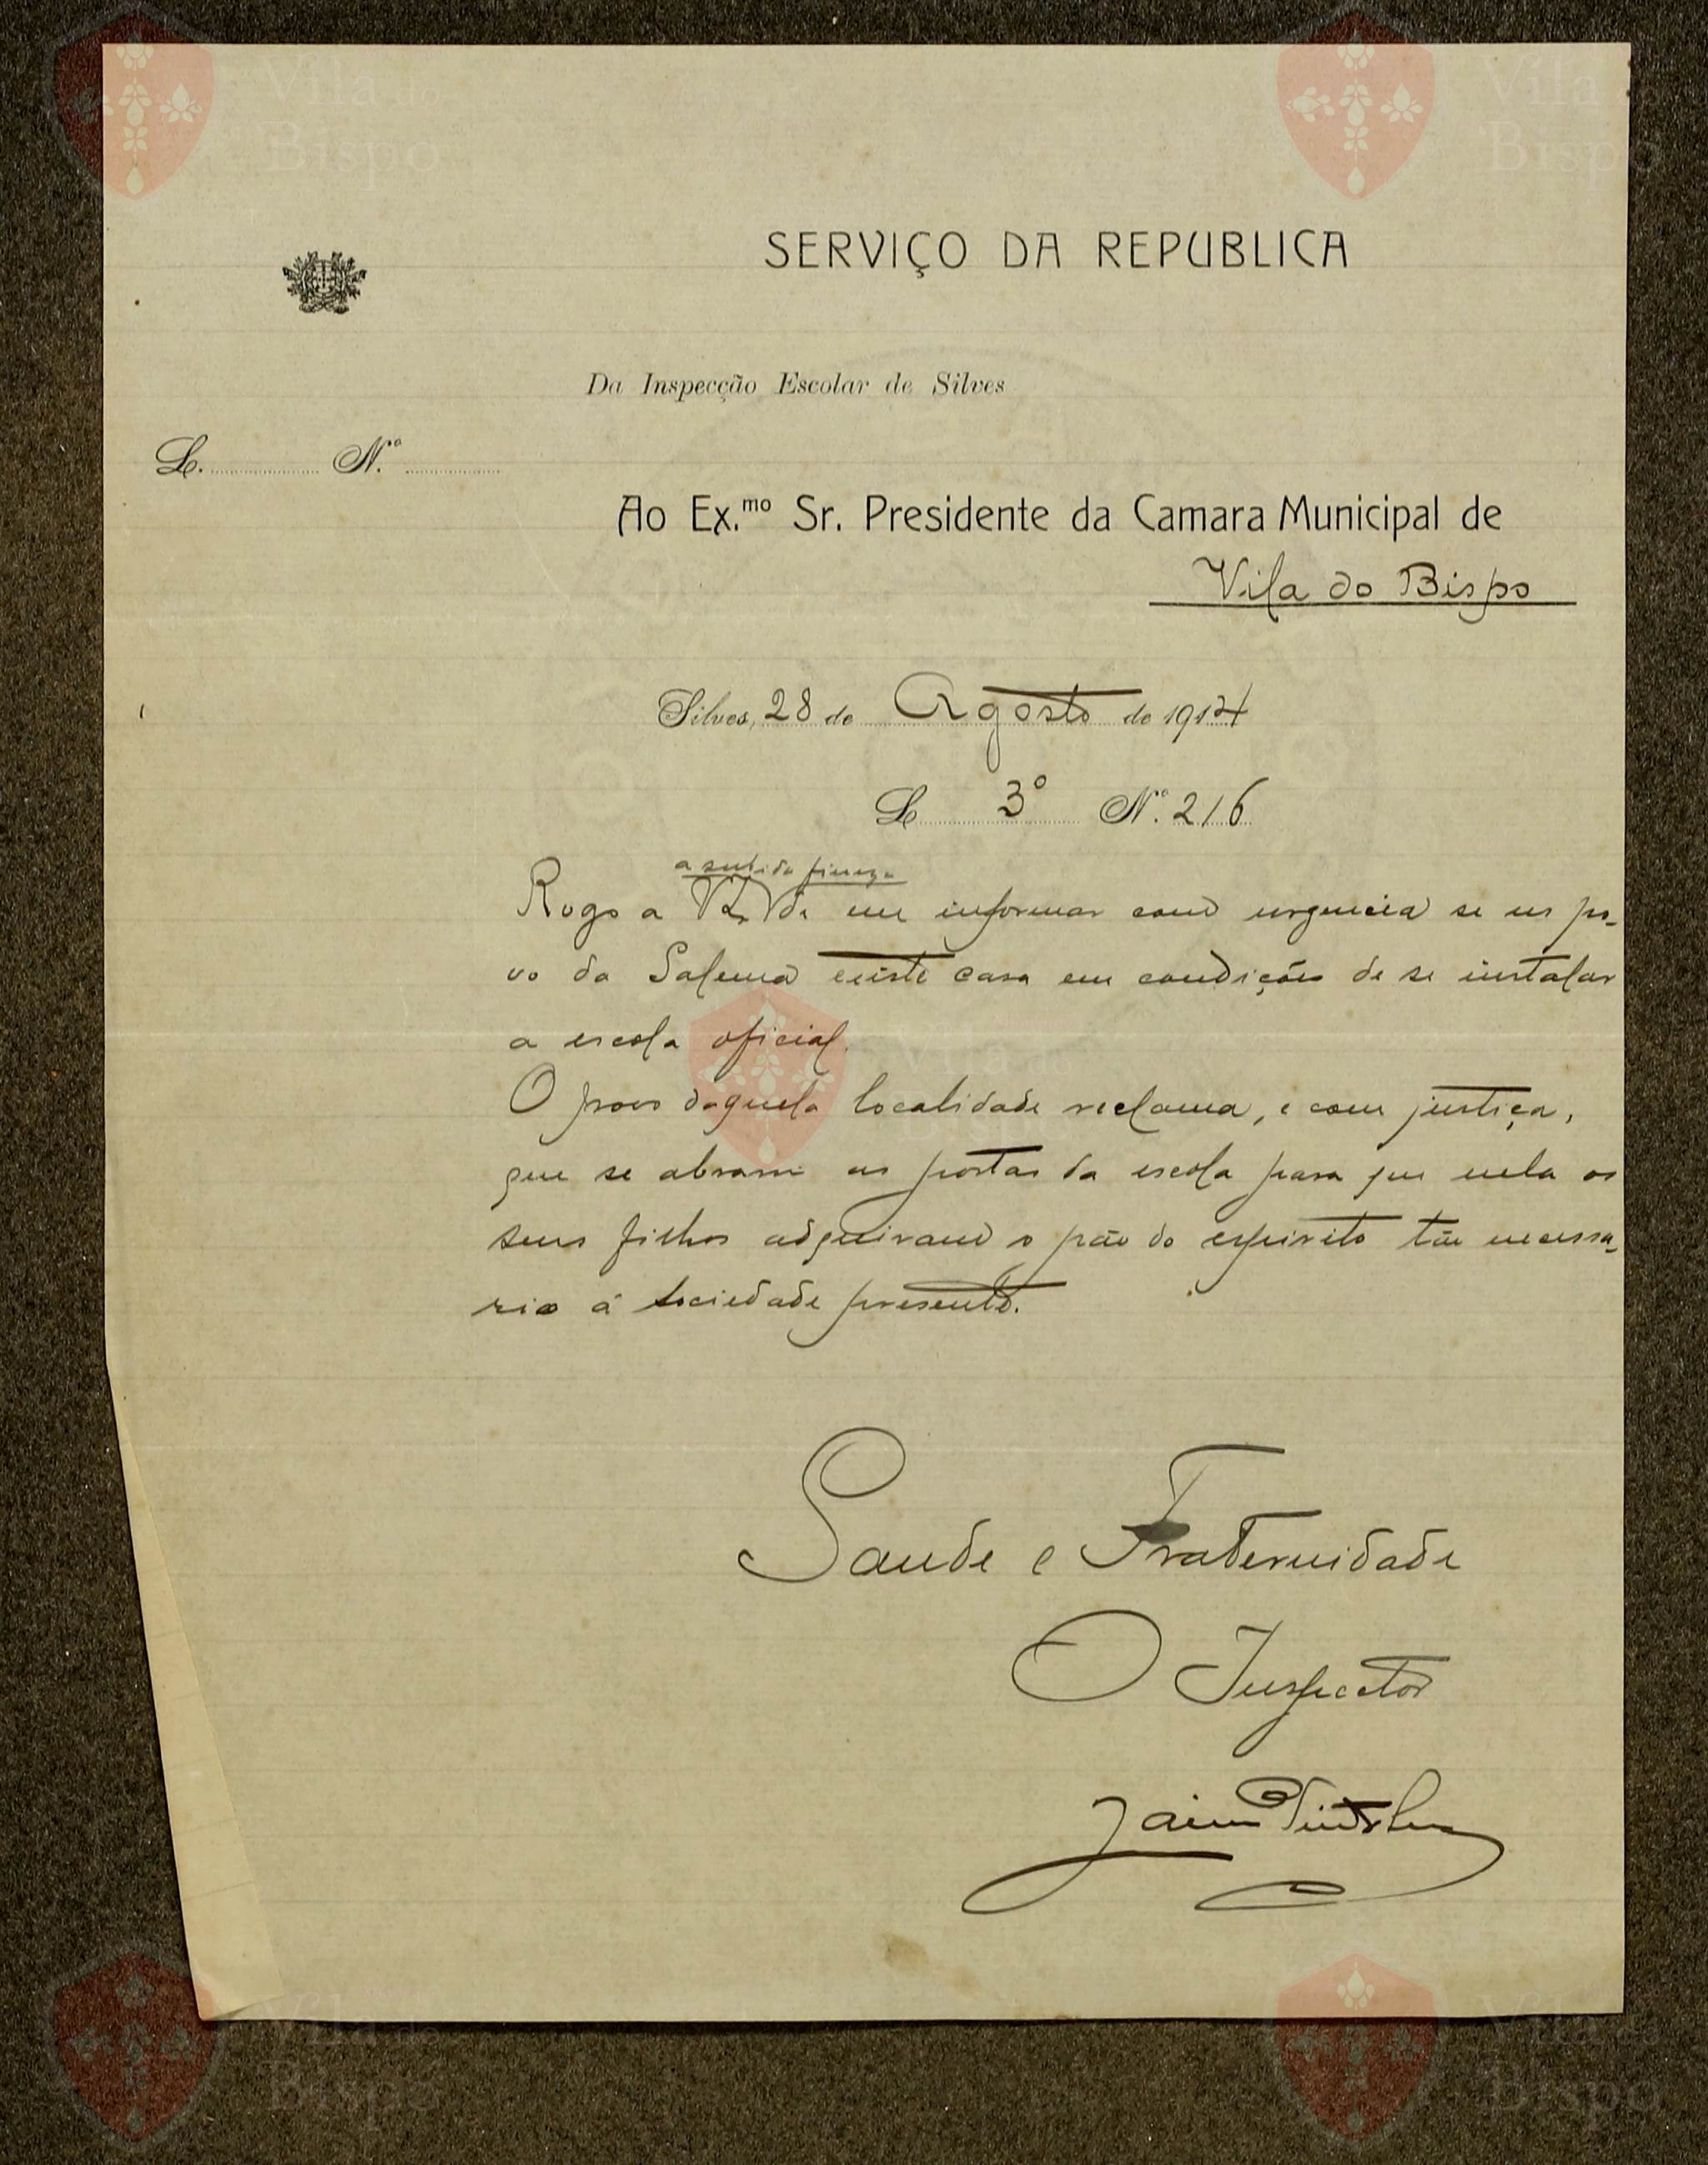 SERVIÇO DA REPUBLICA
Da Inspecção Escolar de Silves
L. N.º
Ao Ex.mo Sr. Presidente da Camara Municipal de
Vila do Bispo
Silves, 28 de Agosto de 1914
L 3º N.º 216
a subida fineza
Rogo a V. de me informar com urgencia se no po-
vo da Salema existe casa em condições de se instalar
a escola oficial.
O povo daquela localidade reclama, e com justiça,
que se abram as portas da escola para que nela os
seus filhos adquiram o pão do espirito tão necessa-
rio á sociedade presente.
Saude e Fraternidade
O Inspector
Jaime
Vila do Bispo
Vila do Bispo
Vila do Bispo
Vila do Bispo
Vila do Bispo